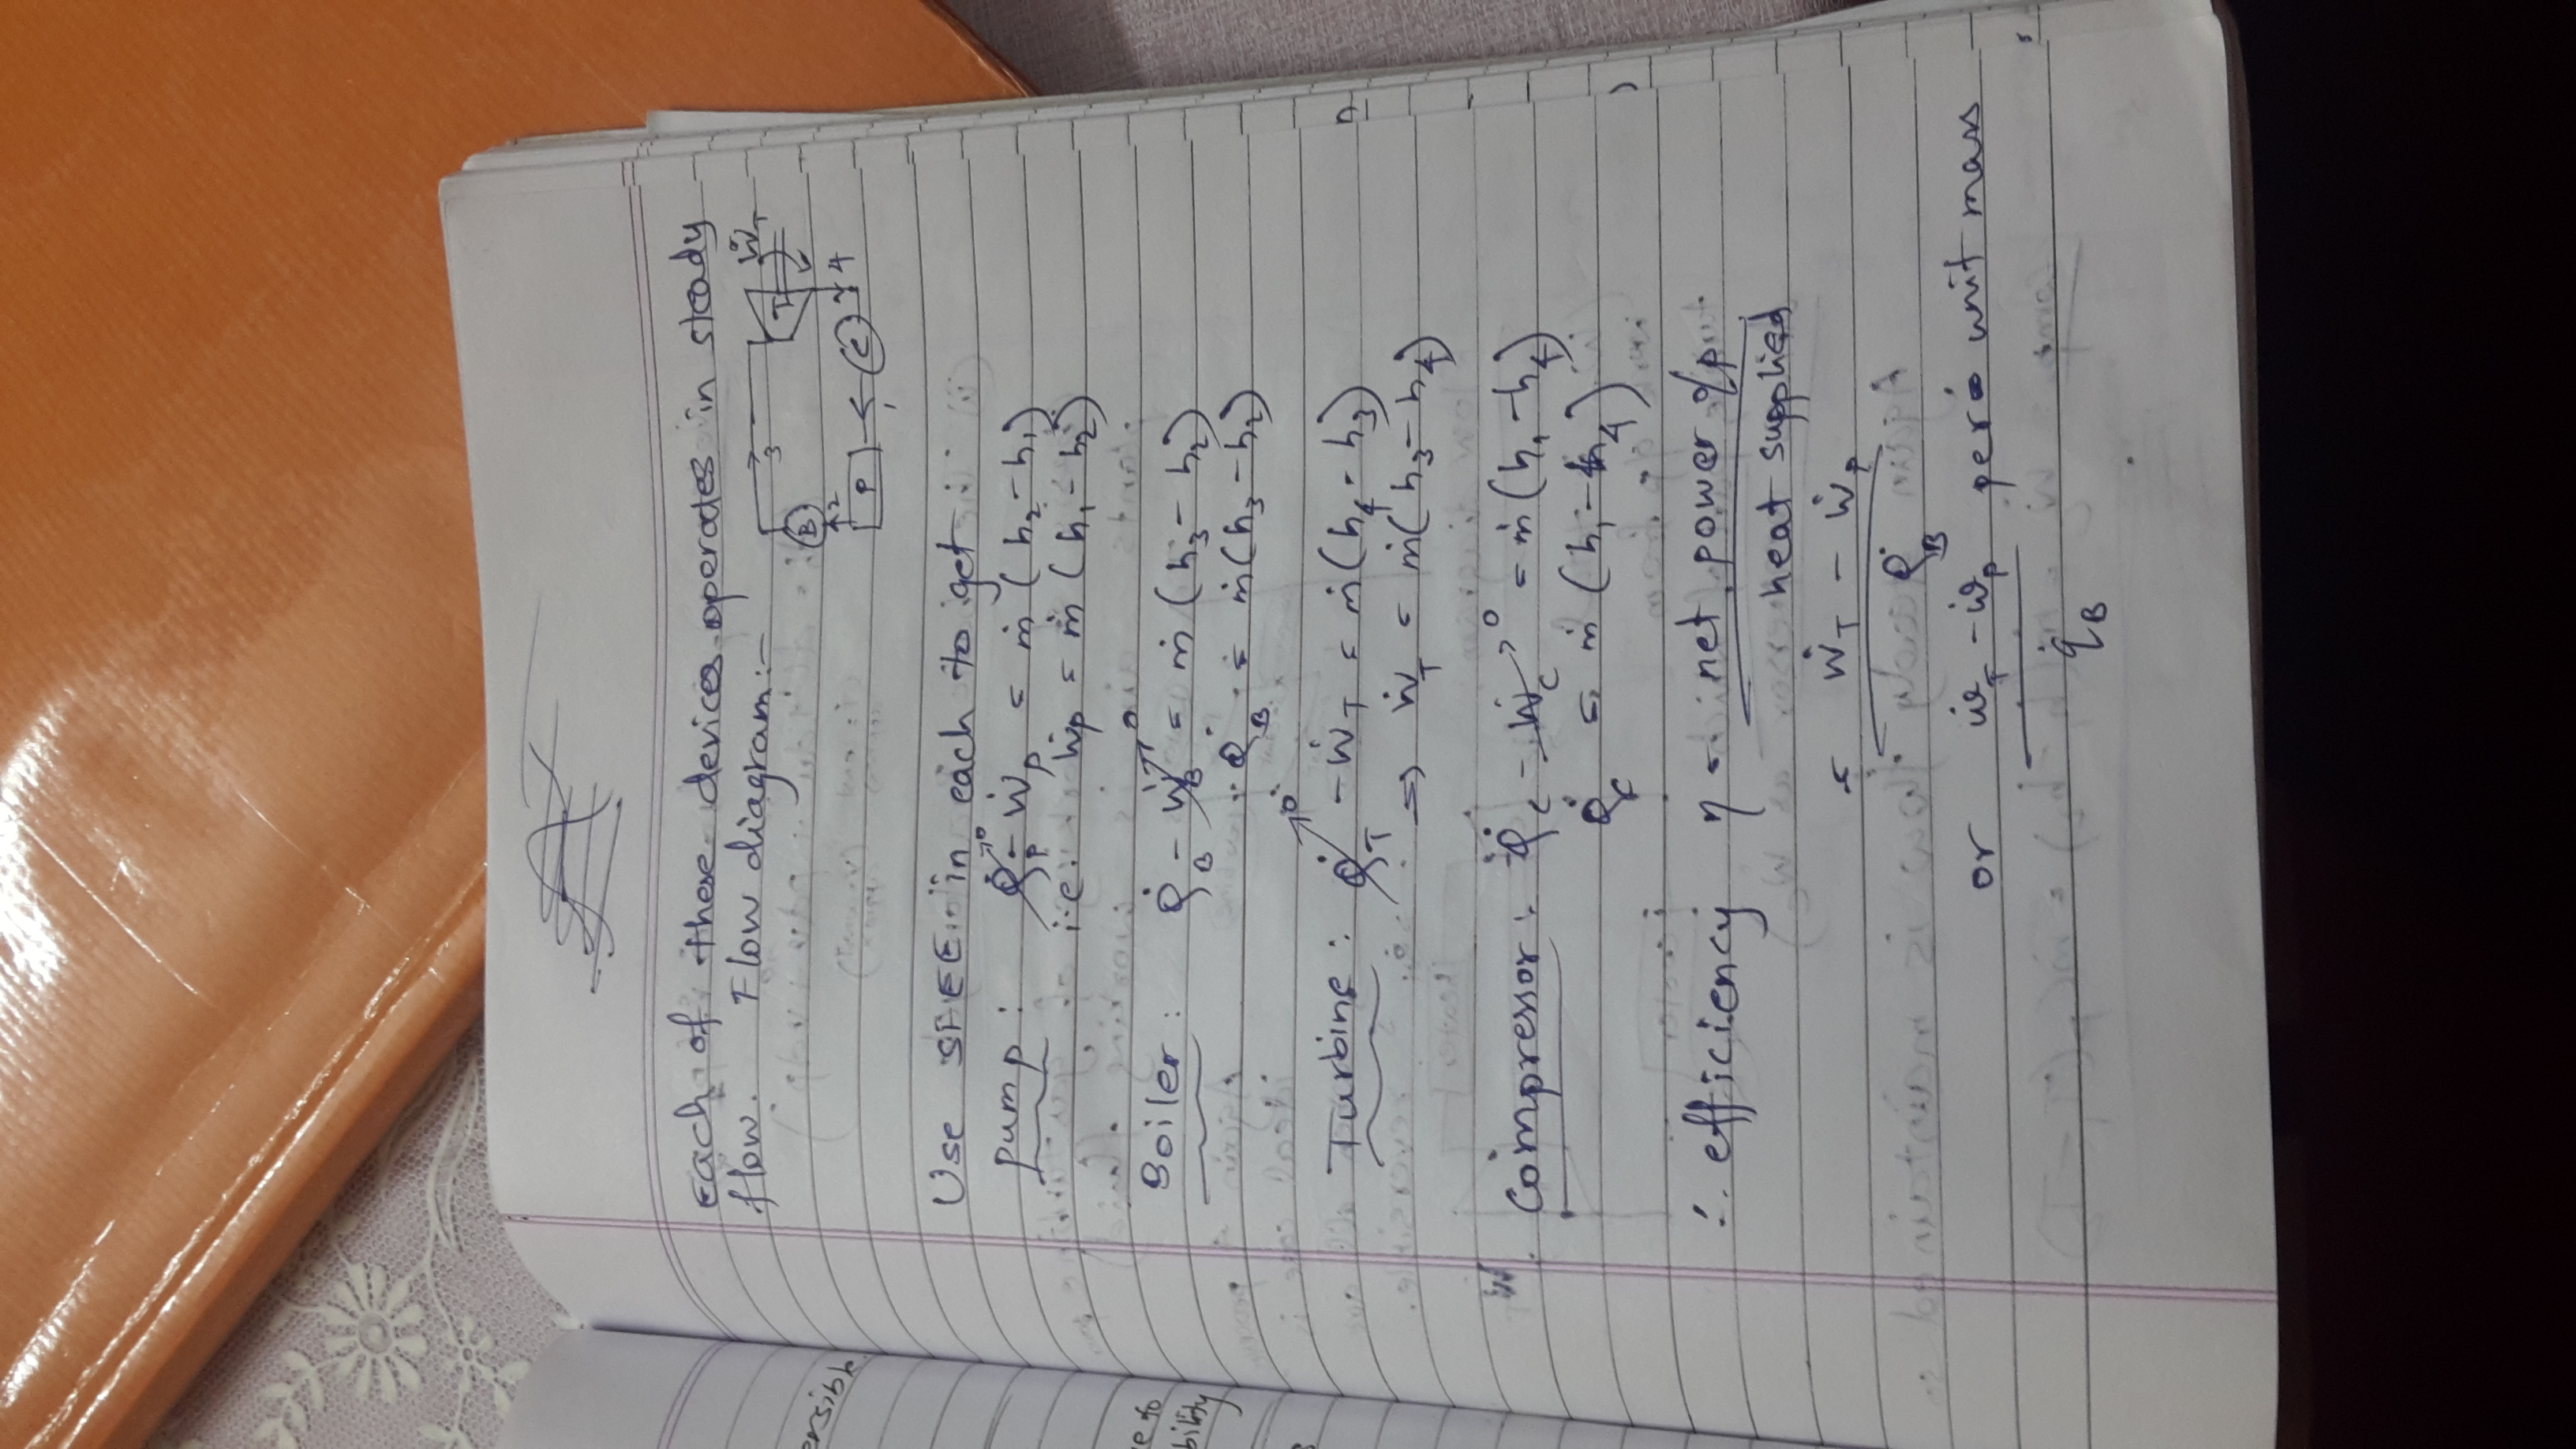 ersible.
e to
bility
Each of these devices operates in steady
flow. Flow diagram:-
3
T
Ẇ_T
B
2
4
P
C
1
Use SFEE in each to get :
Pump : Q̇_P - Ẇ_P = ṁ (h₂-h₁)
0
i.e. Ẇ_P = ṁ (h₁-h₂)
Boiler : Q̇_B - Ẇ_B = ṁ (h₃- h₂)
0
Q̇_B = ṁ(h₃-h₂)
Turbine : Q̇_T - Ẇ_T = ṁ(h₄- h₃)
0
⇒ Ẇ_T = ṁ(h₃-h₄)
Compressor : Q̇_C - Ẇ_C = ṁ(h₁-h₄)
0
Q̇_C = ṁ (h₁-h₄)
∴ efficiency η = net power o/p
heat supplied
= Ẇ_T - Ẇ_P
Q̇_B
or ẇ_T - ẇ_P per unit mass
q̇_B